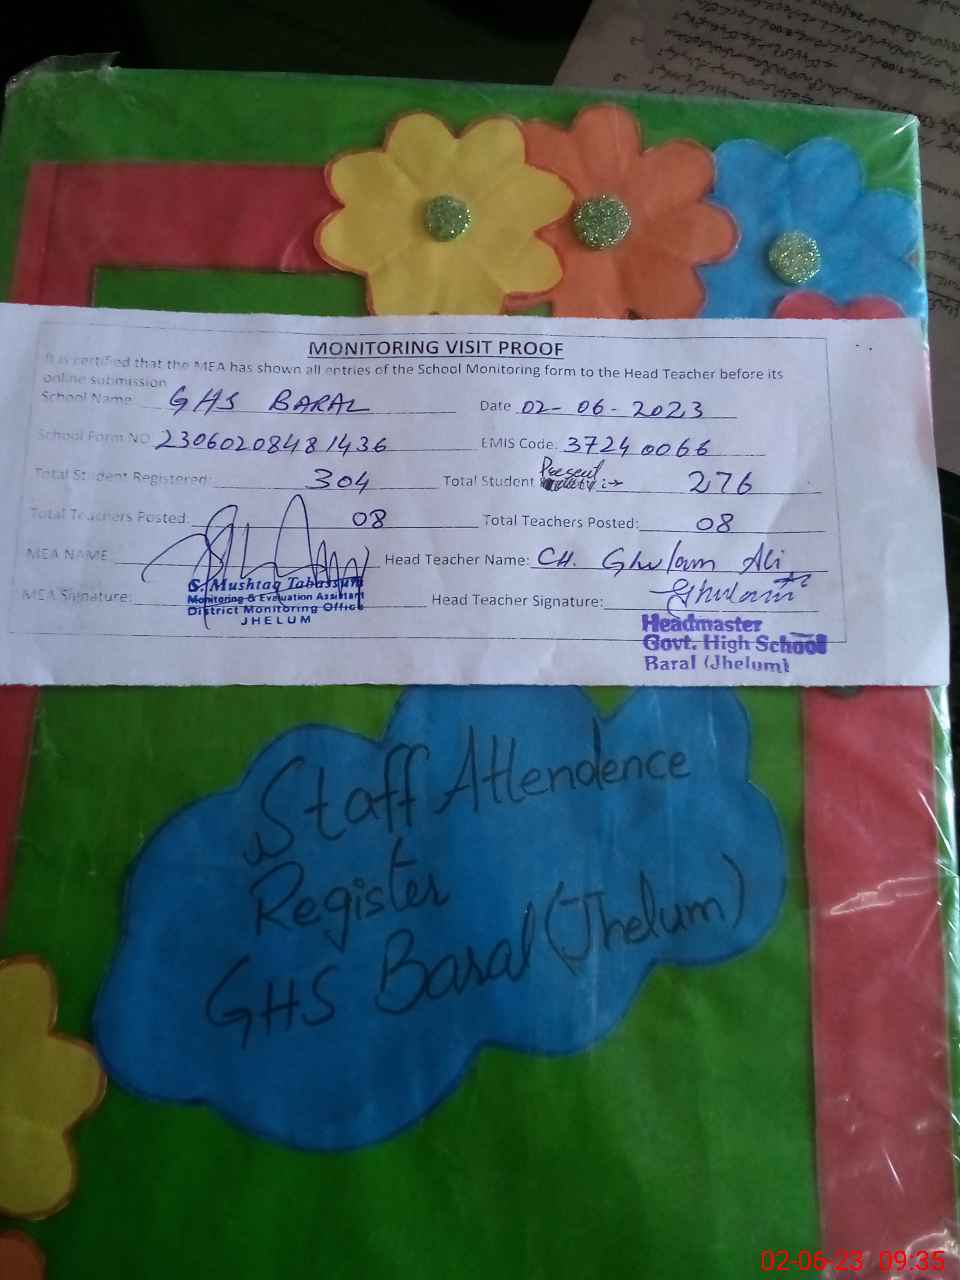 MONITORING VISIT PROOF
It is certified that the MEA has shown all entries of the School Monitoring form to the Head Teacher before its
online submission
School Name GHS BARAL Date 02-06-2023
School Form NO 23060208481436 EMIS Code: 37240066
Total Student Registered: 304 Total Student Present :→ 276
Total Teachers Posted: 08 Total Teachers Posted: 08
MEA NAME Head Teacher Name: CH. Ghulam Ali
MEA Signature: Head Teacher Signature: Ghulam
S. Mushtaq Tabassum
Monitoring & Evaluation Assistant
District Monitoring Office
JHELUM
Headmaster
Govt. High School
Baral (Jhelum)
Staff Attendence
Register
GHS Baral (Jhelum)
02-06-23 09:35